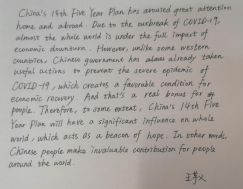 China's 14th Five Year Plan has aroused great attention
home and abroad. Due to the outbreak of COVID-19,
almost the whole world is under the full impact of
economic downturn. However, unlike some western
countries, Chinese government has already taken
useful actions to prevent the severe epidemic of
COVID-19, which creates a favorable condition for
economic recovery. And that's a real bonus for
people. Therefore, to some extent, China's 14th Five
Year Plan will have a significant influence on whole
world, which acts as a beacon of hope. In other words,
Chinese people make invaluable contribution for people
around the world.